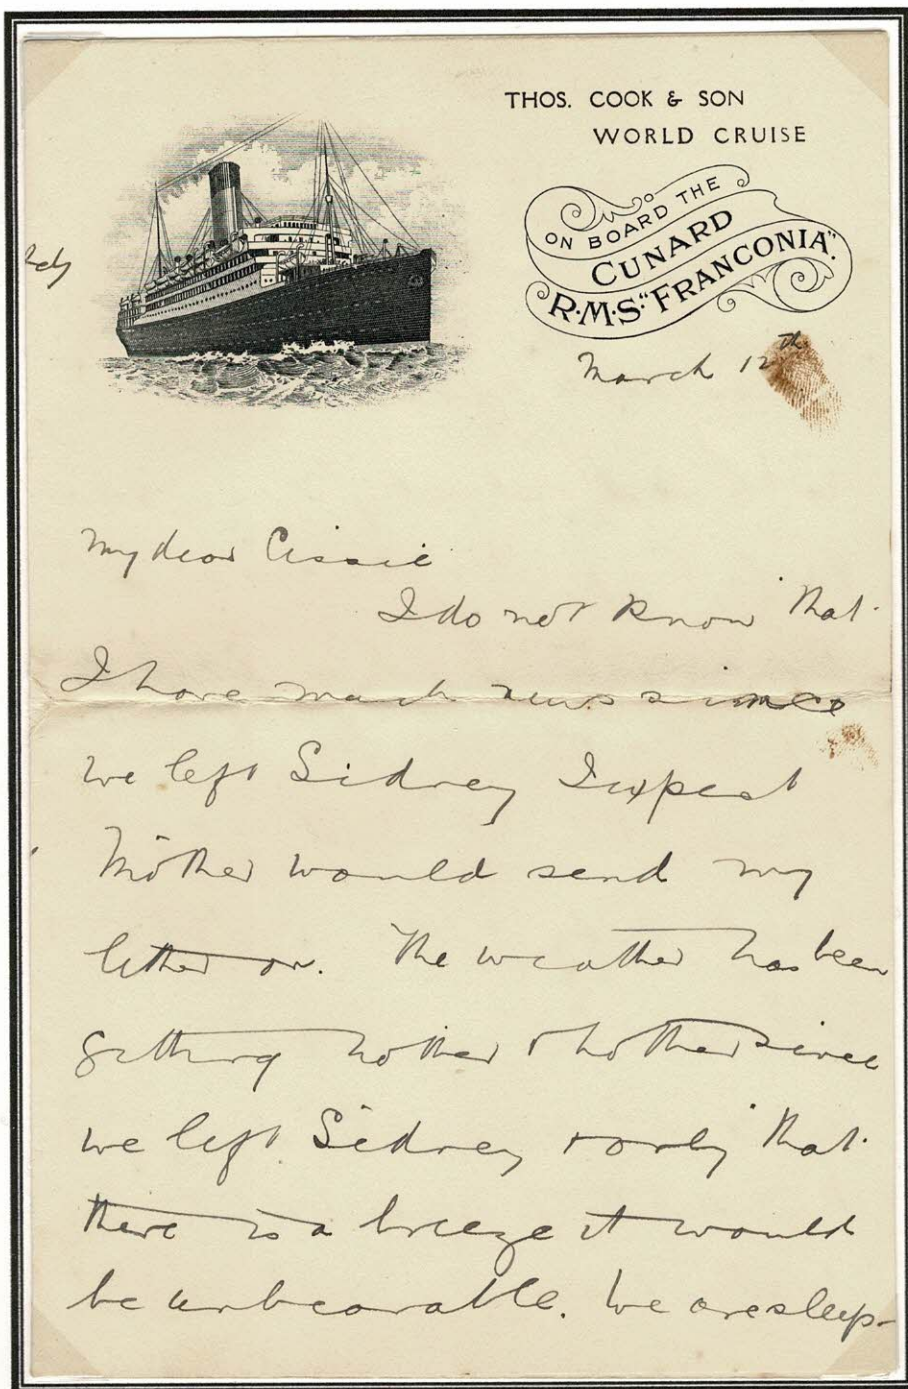 THOS. COOK & SON
WORLD CRUISE
ON BOARD THE
CUNARD
R·M·S·"FRANCONIA".
March 12th
My dear Cissie
I do not know that
I have much news since
we left Sidney I expect
Mother would send my
letter on. The weather has been
getting hotter & hotter since
we left Sidney & only that
there is a breeze it would
be unbearable. We are sleep-